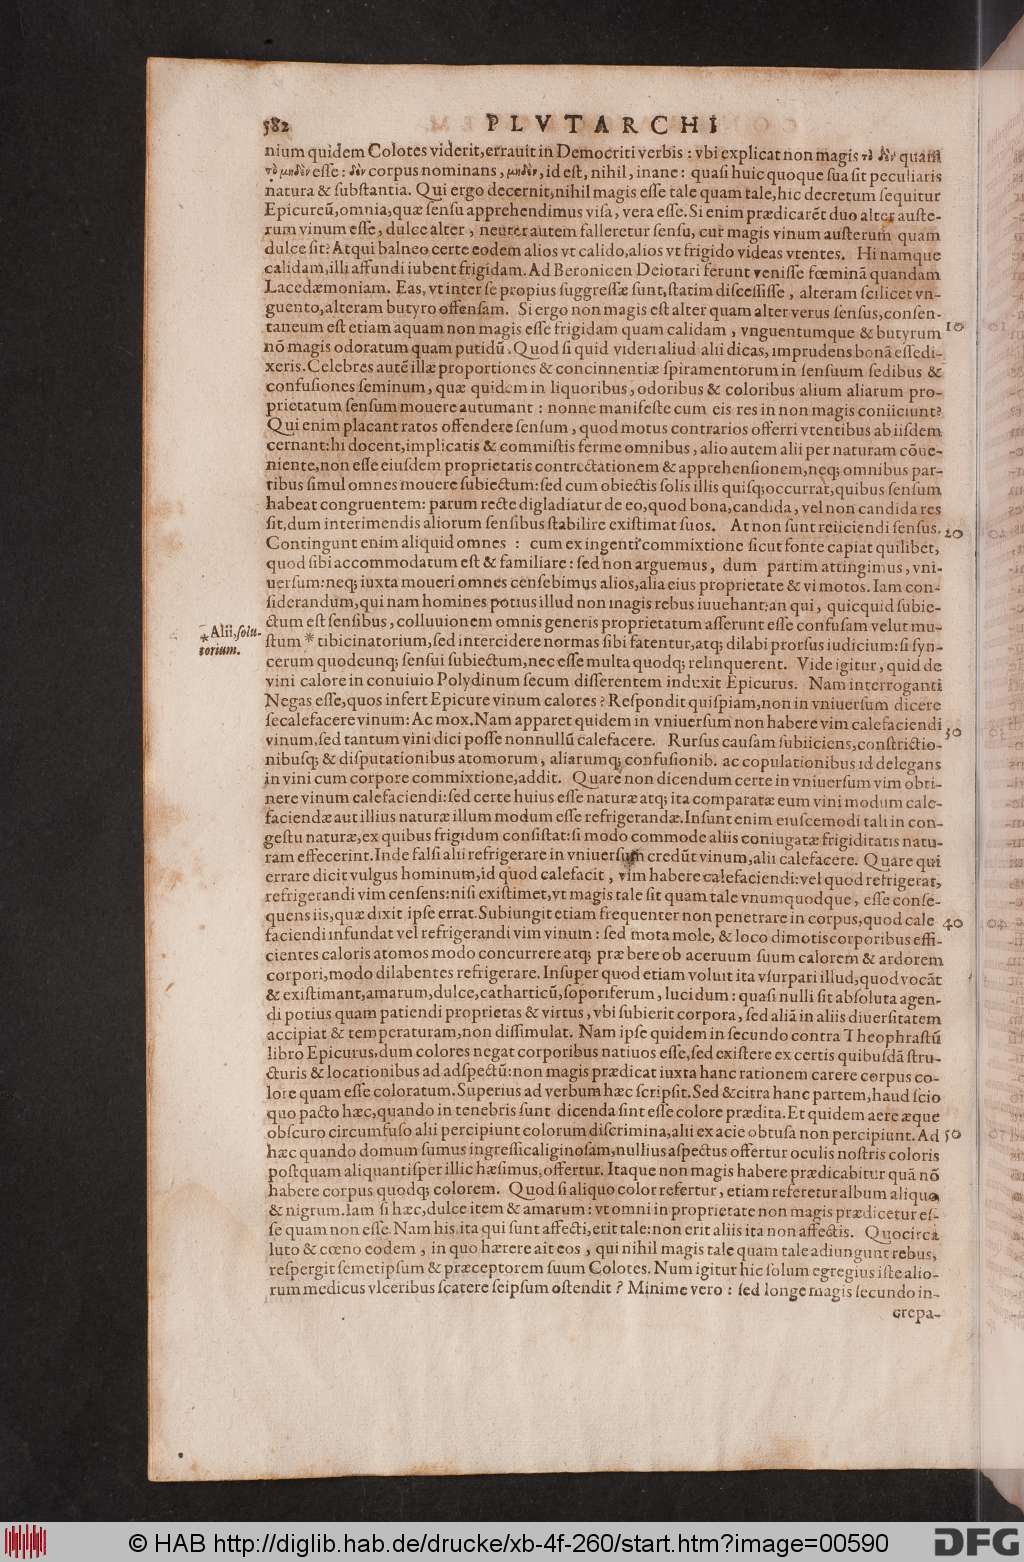 582 PLVTARCHI
nium quidem Colotes viderit, errauit in Democriti verbis : vbi explicat non magis τὸ δὲν quàm
τὸ μηδὲν esse : δὲν corpus nominans, μηδὲν, id est, nihil, inane : quasi huic quoque sua sit peculiaris
natura & substantia. Qui ergo decernit, nihil magis esse tale quam tale, hic decretum sequitur
Epicureū, omnia, quæ sensu apprehendimus visa, vera esse. Si enim prædicarēt duo alter auste-
rum vinum esse, dulce alter, neuter autem falleretur sensu, cur magis vinum austerum quam
dulce sit? Atqui balneo certe eodem alios vt calido, alios vt frigido videas vtentes. Hi namque
calidam, illi affundi iubent frigidam. Ad Beronicen Deiotari ferunt venisse fœminā quandam
Lacedæmoniam. Eas, vt inter se propius suggressæ sunt, statim discessisse, alteram scilicet vn-
guento, alteram butyro offensam. Si ergo non magis est alter quam alter verus sensus, consen-
taneum est etiam aquam non magis esse frigidam quam calidam, vnguentumque & butyrum 10
nō magis odoratum quam putidū. Quod si quid videri aliud alii dicas, imprudens bonā esse di-
xeris. Celebres autē illæ proportiones & concinnentiæ spiramentorum in sensuum sedibus &
confusiones seminum, quæ quidem in liquoribus, odoribus & coloribus alium aliarum pro-
prietatum sensum mouere autumant : nonne manifeste cum eis res in non magis coniiciunt?
Qui enim placant ratos offendere sensum, quod motus contrarios offerri vtentibus ab iisdem
cernant: hi docent, implicatis & commistis ferme omnibus, alio autem alii per naturam cōue-
niente, non esse eiusdem proprietatis contrectationem & apprehensionem, neq; omnibus par-
tibus simul omnes mouere subiectum: sed cum obiectis solis illis quisq; occurrat, quibus sensum
habeat congruentem: parum recte digladiatur de eo, quod bona, candida, vel non candida res
sit, dum interimendis aliorum sensibus stabilire existimat suos. At non sunt reiiciendi sensus. 20
Contingunt enim aliquid omnes : cum ex ingenti commixtione sicut fonte capiat quilibet,
quod sibi accommodatum est & familiare : sed non arguemus, dum partim attingimus, vni-
uersum: neq; iuxta moueri omnes censebimus alios, alia eius proprietate & vi motos. Iam con-
siderandum, qui nam homines potius illud non magis rebus inuehant: an qui, quicquid subie-
ctum est sensibus, colluuionem omnis generis proprietatum asserunt esse confusam velut mu-
* Alii, solu-
torium.
stum * tibicinatorium, sed intercidere normas sibi fatentur, atq; dilabi prorsus iudicium: si syn-
cerum quodcunq; sensui subiectum, nec esse multa quodq; relinquerent. Vide igitur, quid de
vini calore in conuiuio Polydinum secum differentem induxit Epicurus. Nam interroganti
Negas esse, quos infert Epicure vinum calores ? Respondit quispiam, non in vniuersum dicere
se calefacere vinum: Ac mox. Nam apparet quidem in vniuersum non habere vim calefaciendi 30
vinum, sed tantum vini dici posse nonnullū calefacere. Rursus causam subiiciens, constrictio-
nibusq; & disputationibus atomorum, aliarumq; confusionib. ac copulationibus id delegans
in vini cum corpore commixtione, addit. Quare non dicendum certe in vniuersum vim obti-
nere vinum calefaciendi: sed certe huius esse naturæ atq; ita comparatæ eum vini modum cale-
faciendæ aut illius naturæ illum modum esse refrigerandæ. Insunt enim eiuscemodi tali in con-
gestu naturæ, ex quibus frigidum consistat: si modo commode aliis coniugatæ frigiditatis natu-
ram effecerint. Inde falsi alii refrigerare in vniuersum credūt vinum, alii calefacere. Quare qui
errare dicit vulgus hominum, id quod calefacit, vim habere calefaciendi: vel quod refrigerat,
refrigerandi vim censens: nisi existimet, vt magis tale sit quam tale vnumquodque, esse conse-
quens iis, quæ dixit ipse errat. Subiungit etiam frequenter non penetrare in corpus, quod cale 40
faciendi infundat vel refrigerandi vim vinum : sed mota mole, & loco dimotis corporibus effi-
cientes caloris atomos modo concurrere atq; præbere ob aceruum suum calorem & ardorem
corpori, modo dilabentes refrigerare. Insuper quod etiam voluit ita vsurpari illud, quod vocāt
& existimant, amarum, dulce, catharticū, soporiferum, lucidum : quasi nulli sit absoluta agen-
di potius quam patiendi proprietas & virtus, vbi subierit corpora, sed aliā in aliis diuersitatem
accipiat & temperaturam, non dissimulat. Nam ipse quidem in secundo contra Theophrastū
libro Epicurus, dum colores negat corporibus natiuos esse, sed existere ex certis quibusdā stru-
cturis & locationibus ad adspectū: non magis prædicat iuxta hanc rationem carere corpus co-
lore quam esse coloratum. Superius ad verbum hæc scripsit. Sed & citra hanc partem, haud scio
quo pacto hæc, quando in tenebris sunt dicenda sint esse colore prædita. Et quidem aere æque
obscuro circumfuso alii percipiunt colorum discrimina, alii ex acie obtusa non percipiunt. Ad 50
hæc quando domum sumus ingressi caliginosam, nullius aspectus offertur oculis nostris coloris
postquam aliquantisper illic hæsimus, offertur. Itaque non magis habere prædicabitur quā nō
habere corpus quodq; colorem. Quod si aliquo color refertur, etiam referetur album aliquo,
& nigrum. Iam si hæc, dulce item & amarum : vt omni in proprietate non magis prædicetur es-
se quam non esse. Nam his, ita qui sunt affecti, erit tale: non erit aliis ita non affectis. Quocirca
luto & cœno eodem, in quo hærere ait eos, qui nihil magis tale quam tale adiungunt rebus,
respergit semetipsum & præceptorem suum Colotes. Num igitur hic solum egregius iste alio-
rum medicus vlceribus scatere seipsum ostendit ? Minime vero : sed longe magis secundo in-
crepa-
© HAB http://diglib.hab.de/drucke/xb-4f-260/start.htm?image=00590
DFG